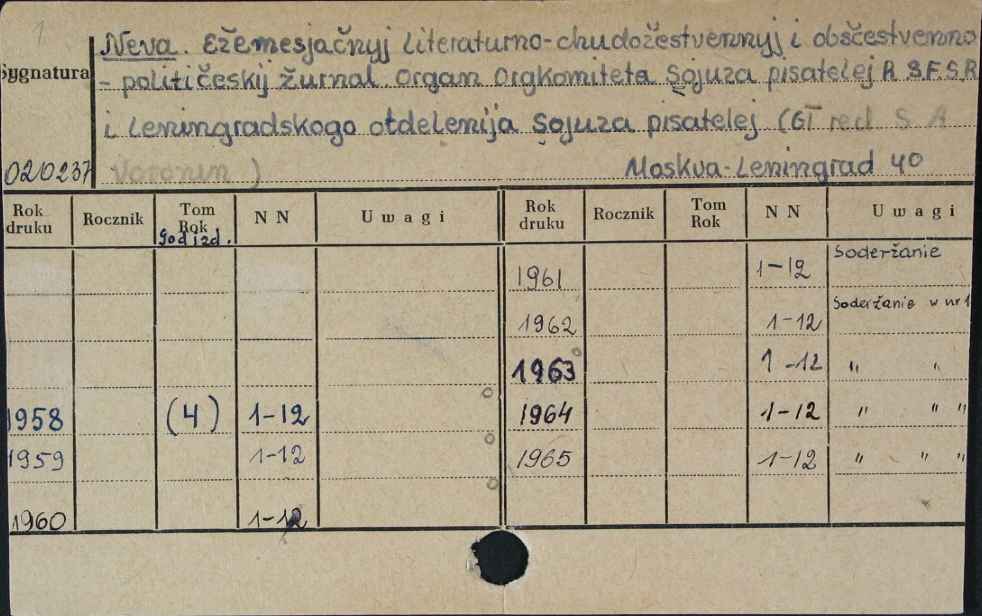 1
Neva. Ežemesjačnyj literaturno-chudožestvennyj i obščestvenno
Sygnatura
- političeskij žurnal. Organ Orgkomiteta Sojuza pisatelej R.S.F.S.R
i Leningradskogo otdelenija Sojuza pisatelej (Gł red S A
020237
Voronin )
Moskva-Leningrad 40
Rok druku Rocznik Tom Rok NN Uwagi Rok druku Rocznik Tom Rok NN Uwagi
god izd.
1961 1-12 Soderžanie
1962 1-12 Soderžanie w nr 1
1963 1-12 " "
1958 (4) 1-12 1964 1-12 " " "
1959 1-12 1965 1-12 " " "
1960 1-12